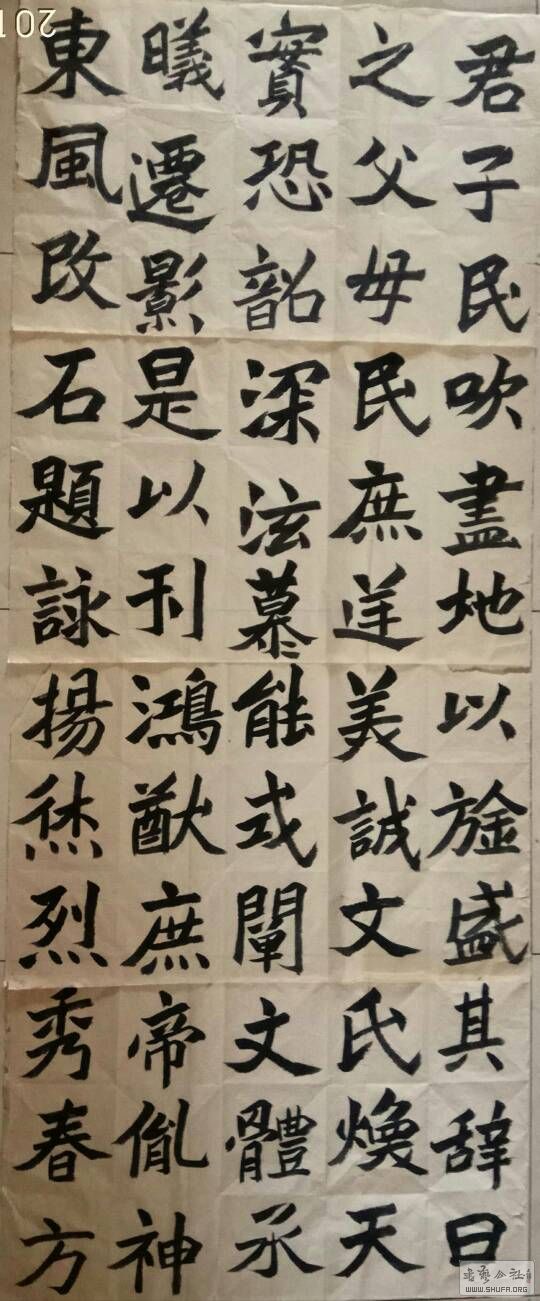 君子民吹盡地以盛其辞曰
之父毋民庶美誠文氏煥天
實恐韶深泫慕能戓闡文體承
曦遷影是以刊鴻猷庶帝胤神
東風改石題詠揚烋烈秀春方
201
WWW.SHUFA.ORG